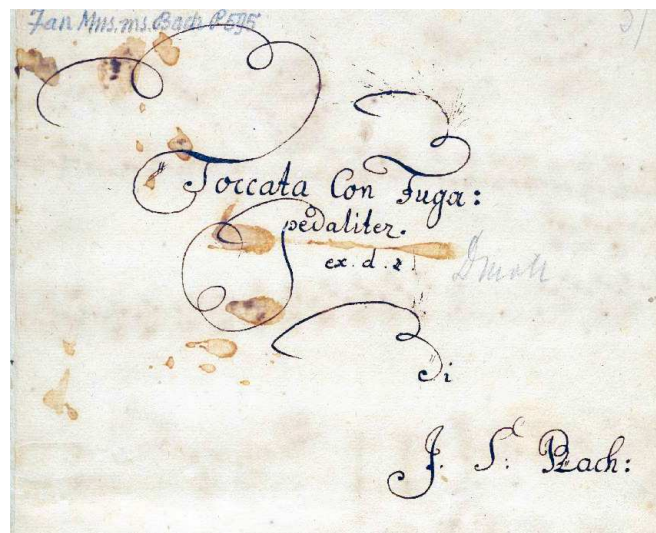 Mus. ms. Bach P 595
Toccata Con Fuga:
pedaliter.
ex. d. #.
Dmoll
di
J. S. Bach: